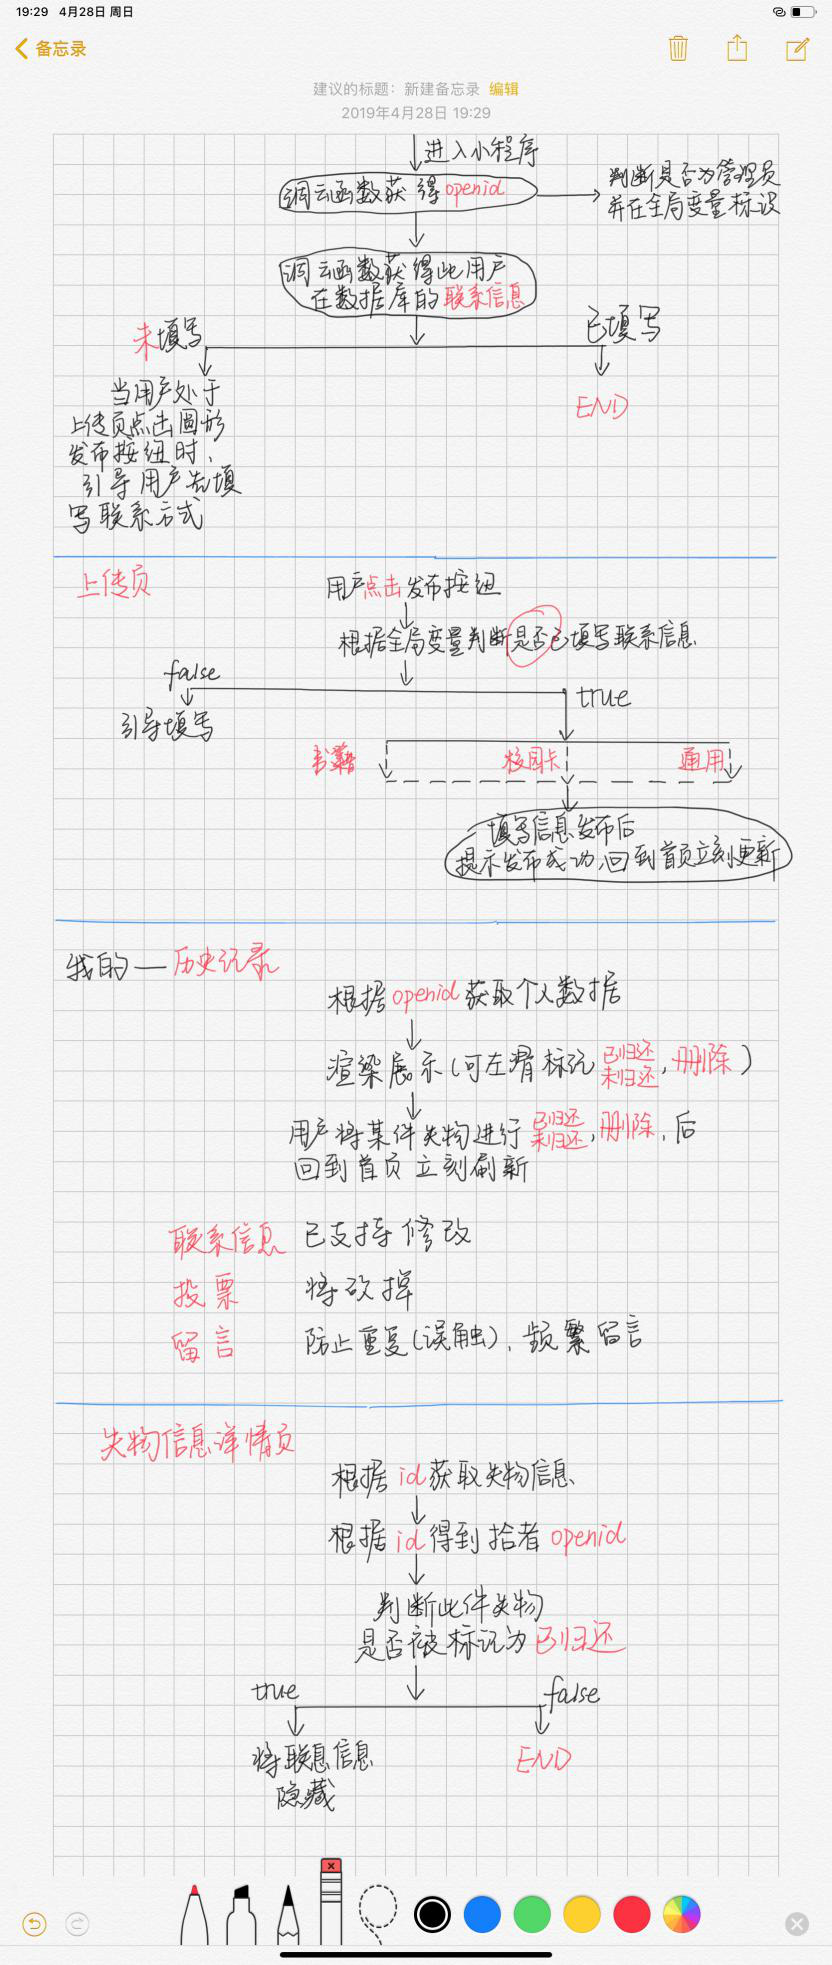 19:29 4月28日 周日
备忘录
建议的标题：新建备忘录 编辑
2019年4月28日 19:29
进入小程序
调云函数获得openid
判断是否为管理员
并在全局变量标识
调云函数获得此用户
在数据库的联系信息
未填写
已填写
当用户处于
上传页点击圆形
发布按纽时，
引导用户先填
写联系方式
END
上传页
用户点击发布按纽
根据全局变量判断是否已填写联系信息
false
true
引导填写
书籍
校园卡
通用
填写信息发布后
提示发布成功,回到首页立刻更新
我的—历史记录
根据openid获取个人数据
渲染展示(可左滑标记已归还
未归还,删除)
用户将某件失物进行已归还
未归还,删除,后
回到首页立刻刷新
联系信息 已支持修改
投票 将改掉
留言 防止重复(误触)、频繁留言
失物信息详情页
根据id获取失物信息
根据id得到拾者openid
判断此件失物
是否被标记为已归还
true
false
将联息信息
隐藏
END